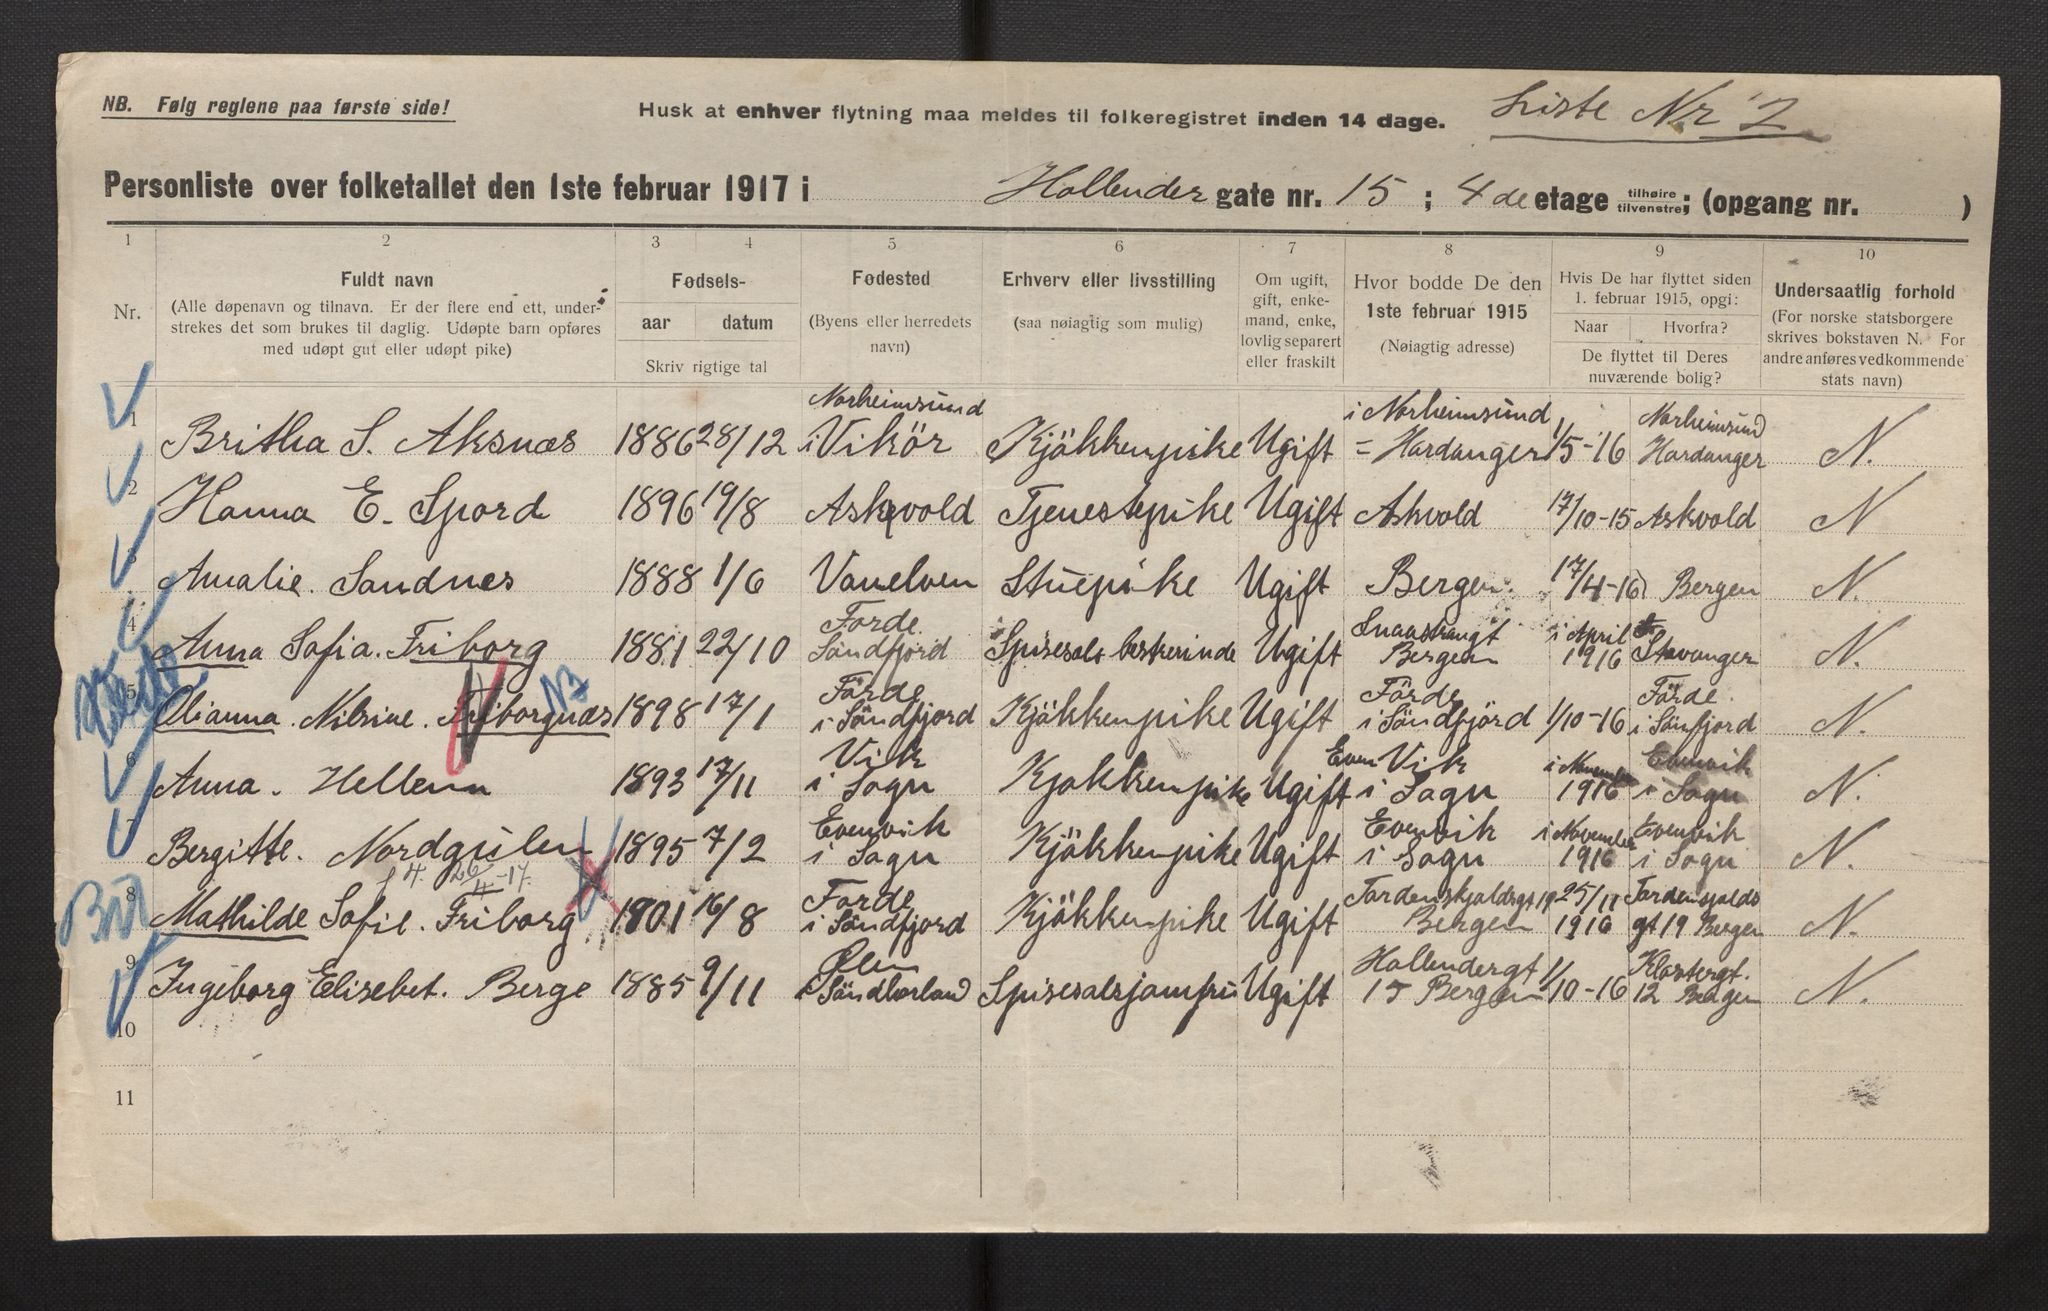 NB. Følg reglene paa første side!
Husk at enhver flytning maa meldes til folkeregistret inden 14 dage.
Liste Nr 2
Personliste over folketallet den 1ste februar 1917 i Hollender gate nr. 15 ; 4 de etage tilhøire tilvenstre; (opgang nr. )
1 2 3 4 5 6 7 8 9 10
Nr.
Fuldt navn
(Alle døpenavn og tilnavn. Er der flere end ett, under-
strekes det som brukes til daglig. Udøpte barn opføres
med udøpt gut eller udøpt pike)
Fødsels-
aar datum
Skriv rigtige tal
Fødested
(Byens eller herredets
navn)
Erhverv eller livsstilling
(saa nøiagtig som mulig)
Om ugift,
gift, enke-
mand, enke,
lovlig separert
eller fraskilt
Hvor bodde De den
1ste februar 1915
(Nøiagtig adresse)
Hvis De har flyttet siden
1. februar 1915, opgi:
Naar Hvorfra?
De flyttet til Deres
nuværende bolig?
Undersaatlig forhold
(For norske statsborgere
skrives bokstaven N. For
andre anføres vedkommende
stats navn)
Norheimsund i Norheimsund Norheimsund
1 Britha S. Aksnæs 1886 28/12 i Vikör Kjökkenpike Ugift = Hardanger 1/5-16 Hardanger N.
2 Hanna E. Spord 1896 19/8 Askvold Tjenestepike Ugift Askvold 17/10-15 Askvold N
3 Amalie. Sandnes 1888 1/6 Vanelven Stuepike Ugift Bergen. 17/4-16 Bergen N.
Förde i April
4 Anna Sofia. Friborg 1881 22/10 Söndfjord Ugift Bergen 1916 Stavanger N.
NB
Förde Förde Förde
5 Nilsine. Friborgnæs 1898 17/1 i Söndfjord Kjökkenpike Ugift i Söndfjörd 1/10-16 i Sönfjord N.
Vik Even Vik i November Evenvik
6 Anna. Hellem 1893 17/11 i Sogn Kjökkenpike Ugift i Sogn 1916 i Sogn N.
Evenvik Evenvik i November Evenvik
7 Bergitte. Nordgulen 1895 7/2 i Sogn Kjökkenpike Ugift i Sogn 1916 i Sogn N.
26/4-17.
Förde Tordenskjoldsgt 19 25/11 Tordenskjolds
8 Mathilde Sofie. Friborg 1901 16/8 i Söndfjord Kjökkenpike Ugift Bergen 1916 gt 19 Bergen N.
Ølen Hollendergt Klostergt.
9 Ingeborg Elisebet. Berge 1885 9/11 Spisesalsjomfru Ugift 15 Bergen 1/10-16 12 Bergen N.
10
11